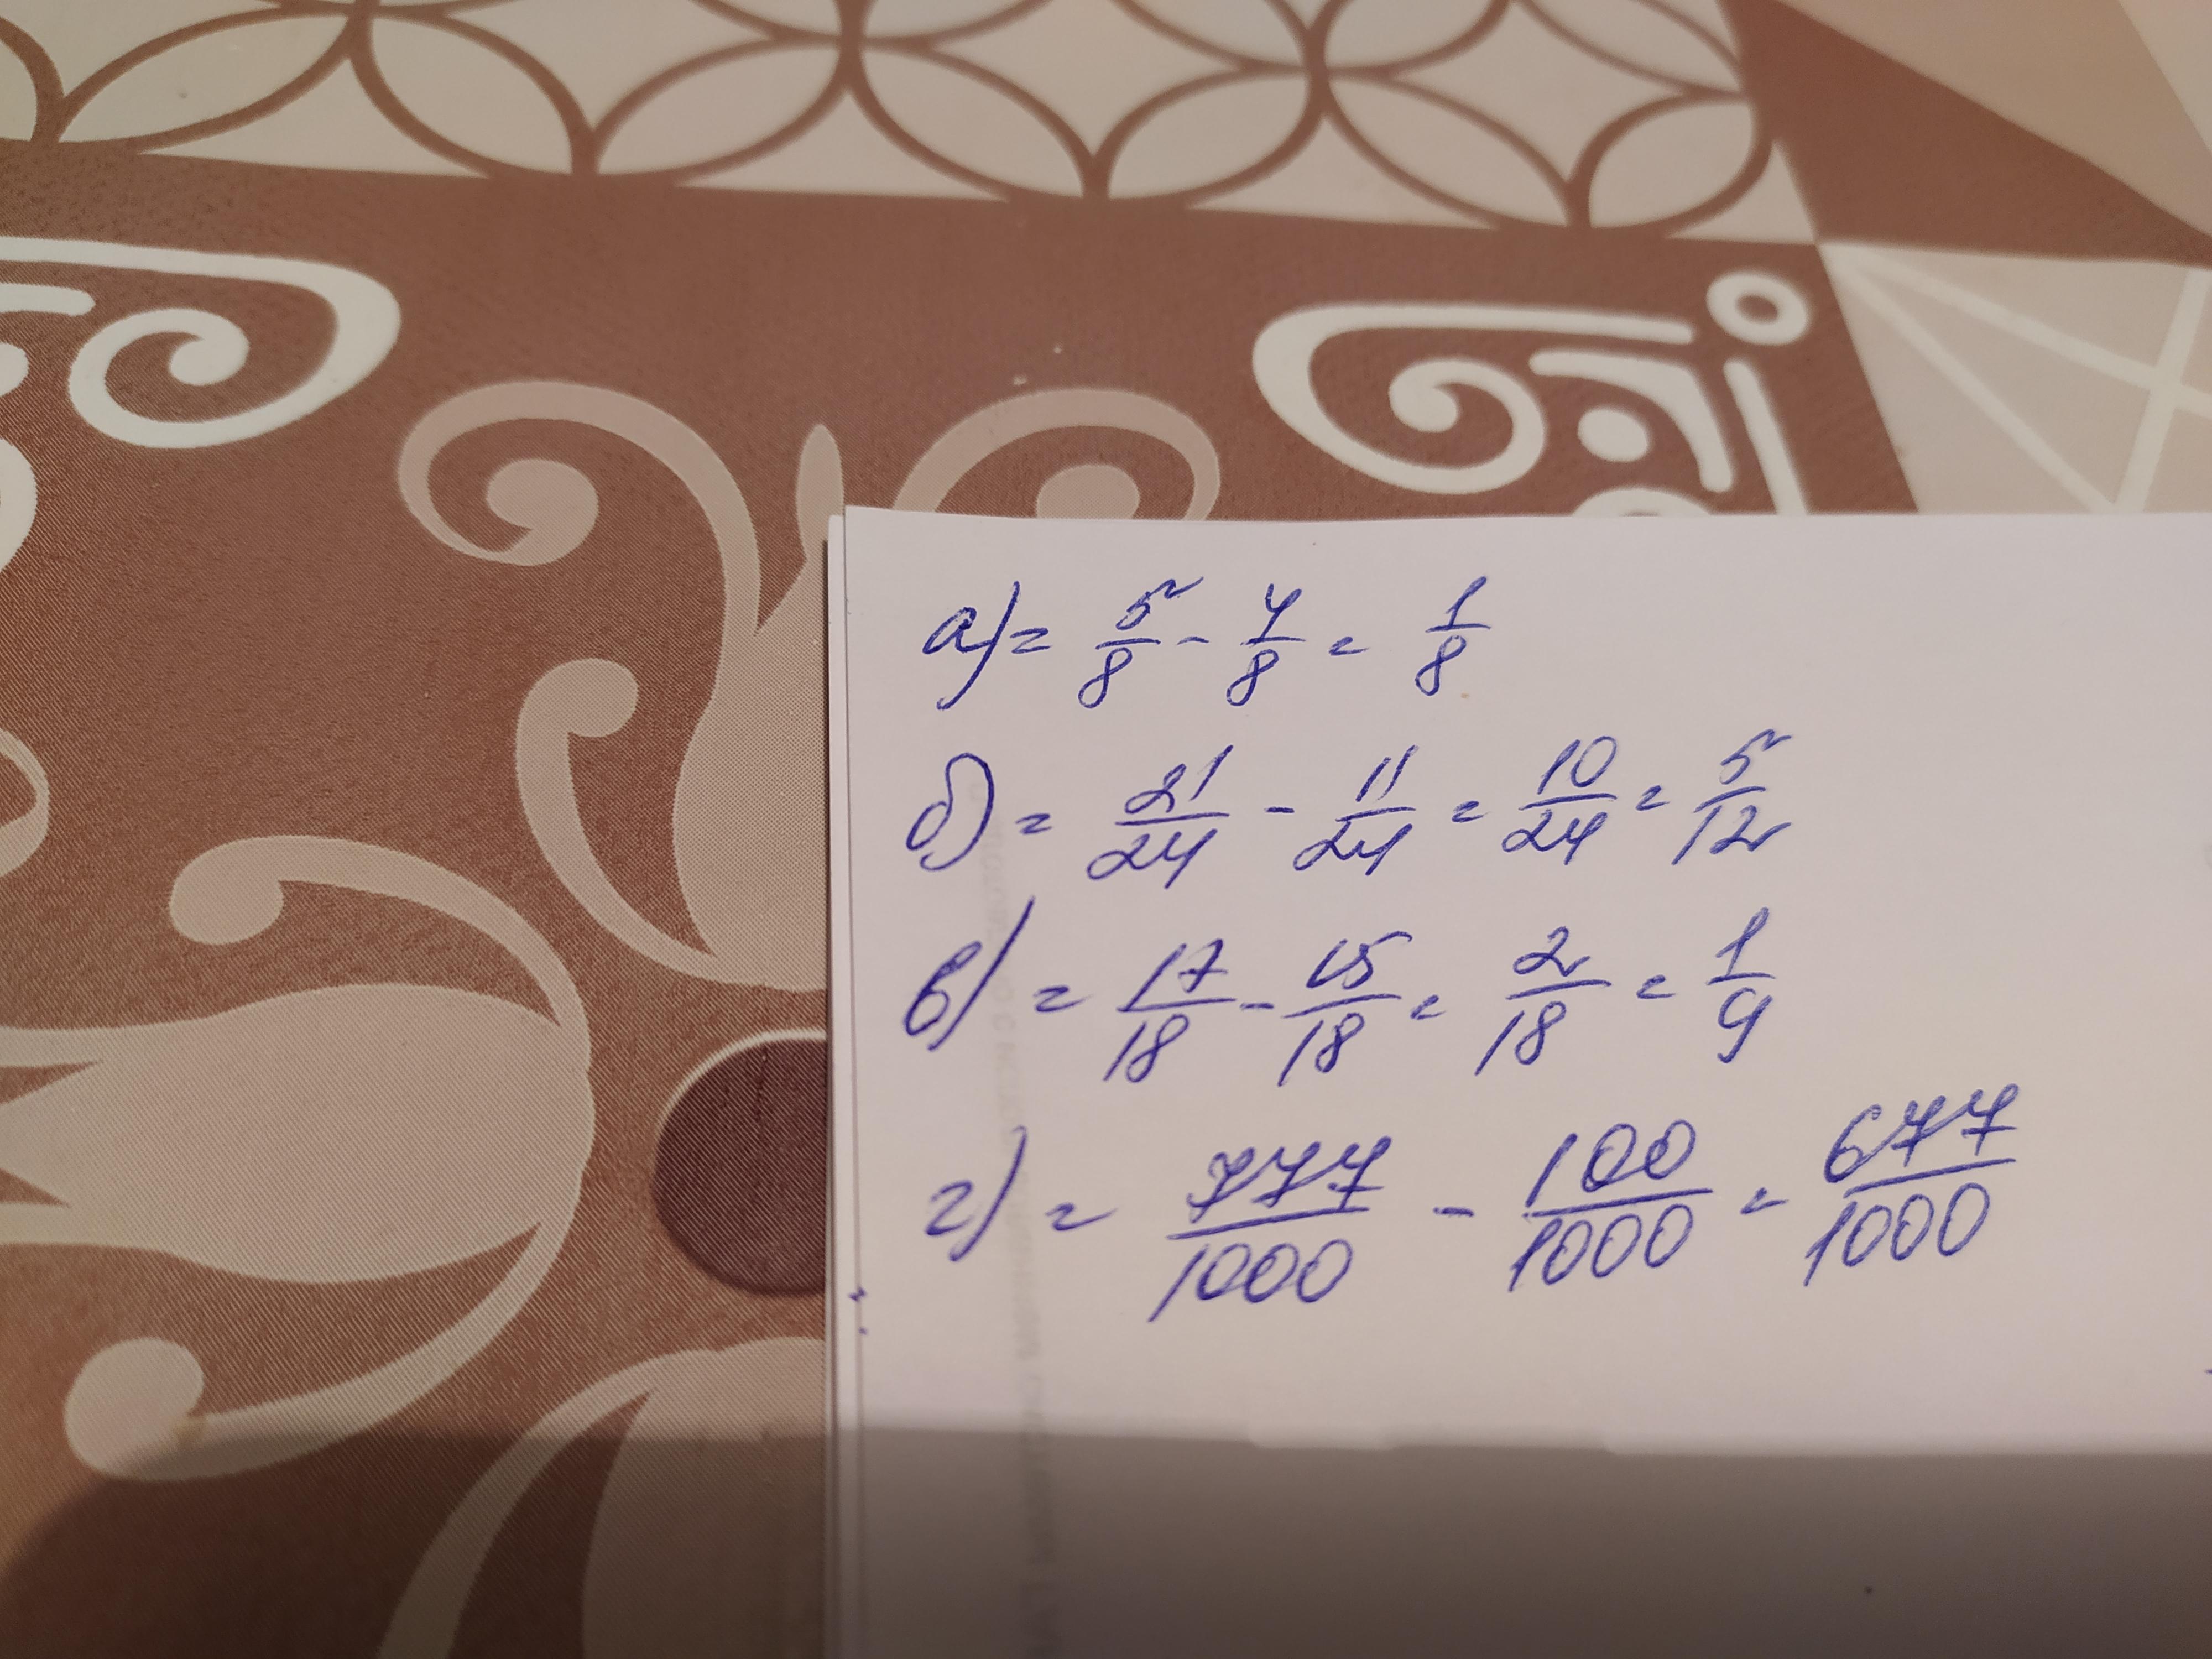 а) = 5/8 - 4/8 = 1/8
б) = 21/24 - 11/24 = 10/24 = 5/12
в) = 17/18 - 15/18 = 2/18 = 1/9
г) = 777/1000 - 100/1000 = 677/1000